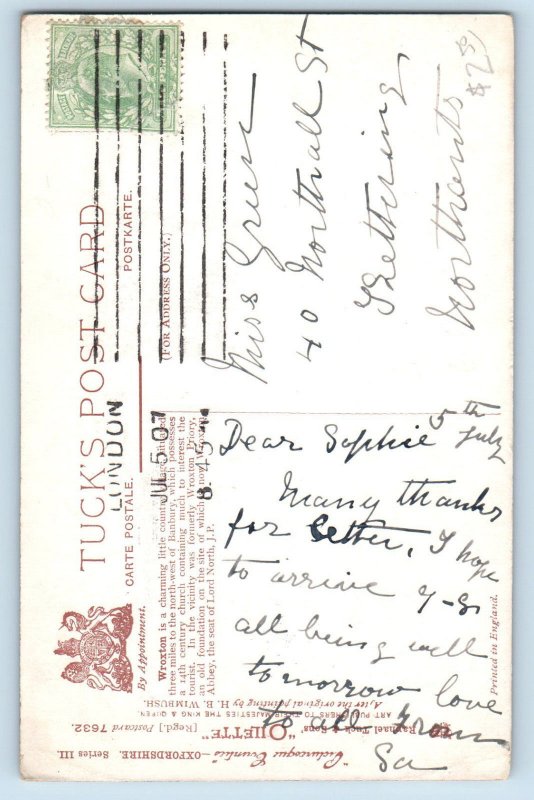 TUCK'S POST CARD
CARTE POSTALE.
POSTKARTE.
(FOR ADDRESS ONLY.)
By Appointment.
LONDON
JUL 5 07
8.45
Wroxton is a charming little country village situated
three miles to the north-west of Banbury, which possesses
a 14th century church containing much to interest the
tourist. In the vicinity was formerly Wroxton Priory,
an old foundation on the site of which is now Wroxton
Abbey, the seat of Lord North, J.P.
Miss
40 Northall St
Kettering
Northants
$ 7.50
5th
July
Dear Sophie
Many thanks
for letter, I hope
to arrive 7-9
all being well
tomorrow love
to all from
Printed in England.
Raphael Tuck & Sons "OILETTE" [Regd.] Postcard 7632.
"Picturesque Counties"—OXFORDSHIRE. Series III.
After the original painting by H. B. WIMBUSH.
ART PUBLISHERS TO THEIR MAJESTIES THE KING & QUEEN